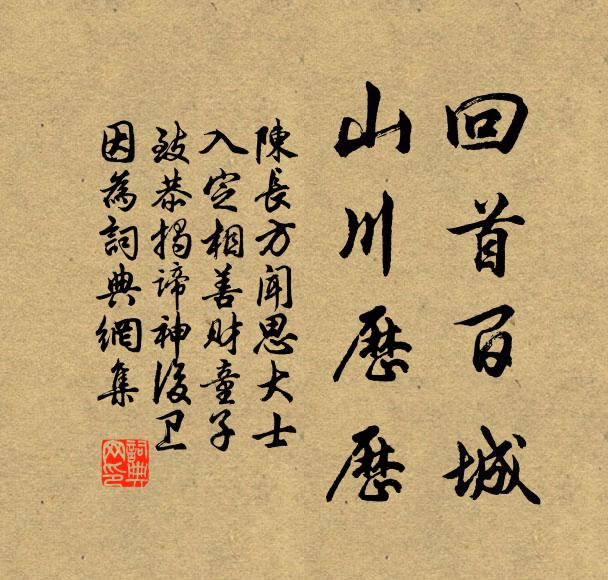 回首百城
山川歷歷
陳長方聞思大士
入定相善財童子
致恭揭諦神後卫
因為詞典網集
詞典
网印